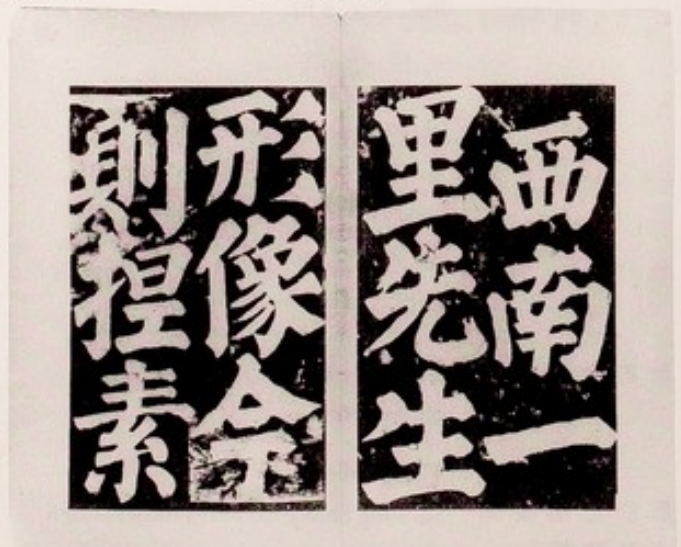 西南一
里先生
形像今
則捏素